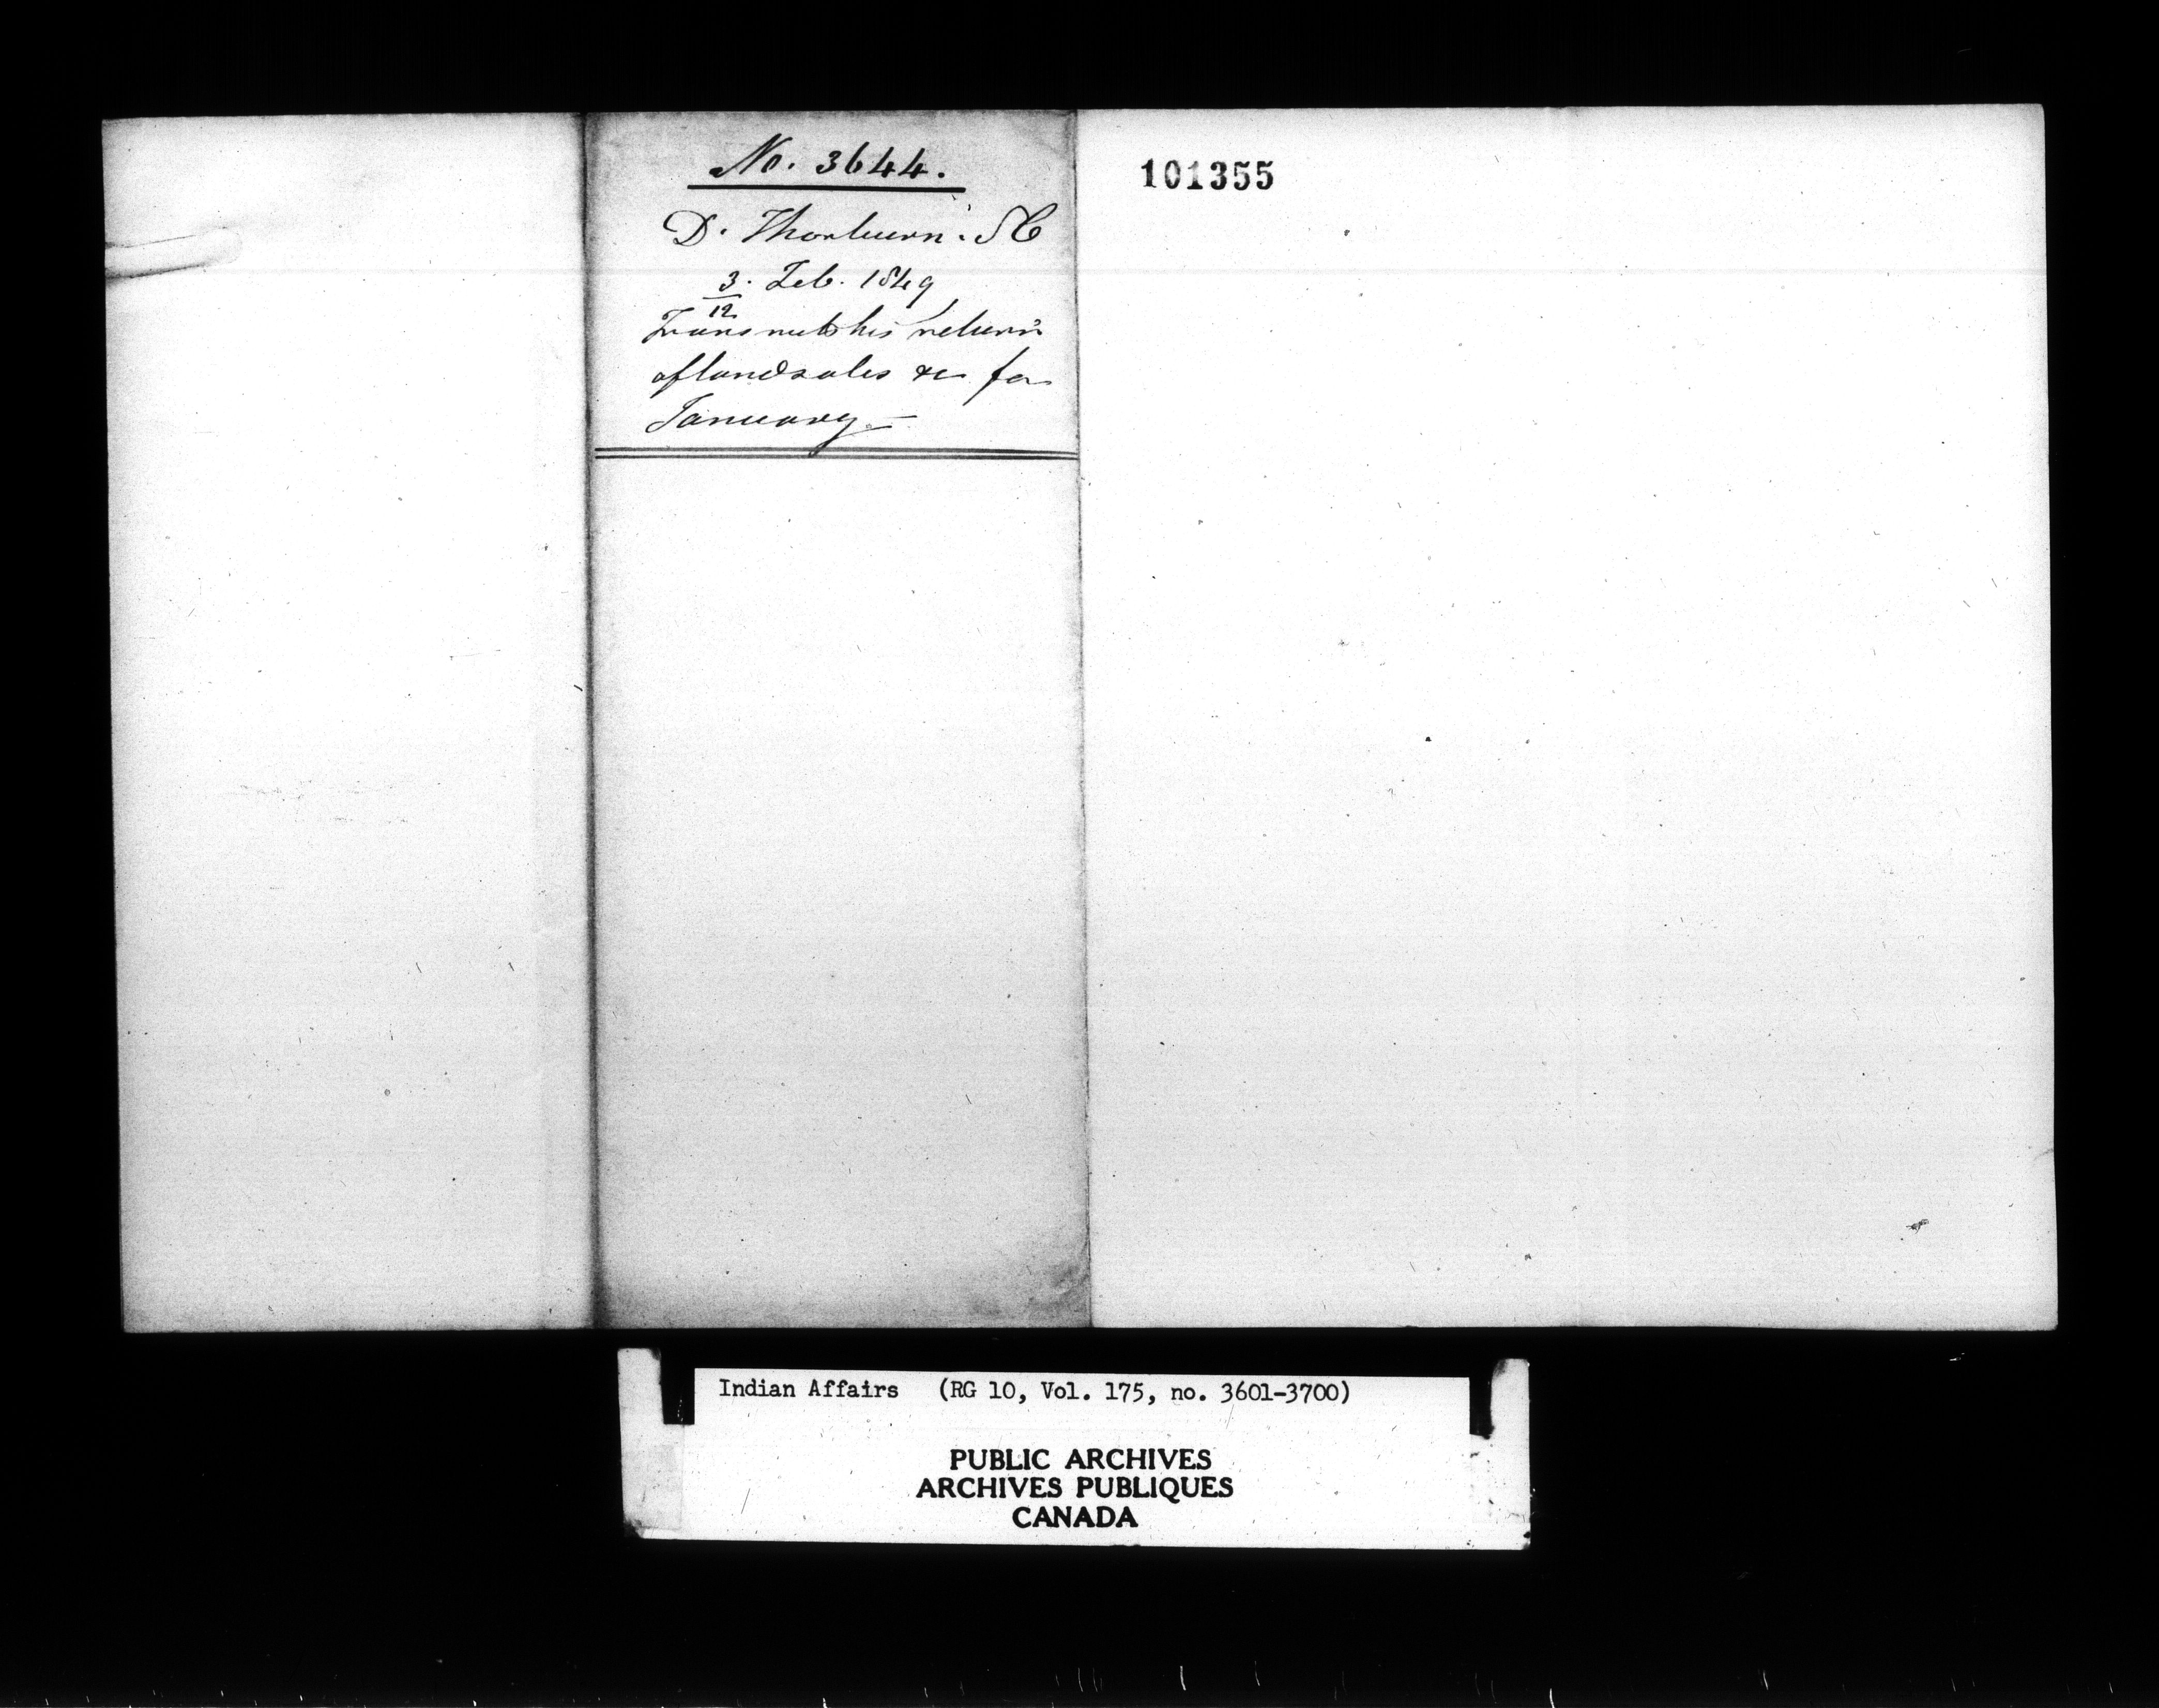 No. 3644.
D. Thorburn. SC
3. Feb. 1849
12
Transmits his return
of land sales &c for
January —
101355
Indian Affairs (RG 10, Vol. 175, no. 3601-3700)
PUBLIC ARCHIVES
ARCHIVES PUBLIQUES
CANADA